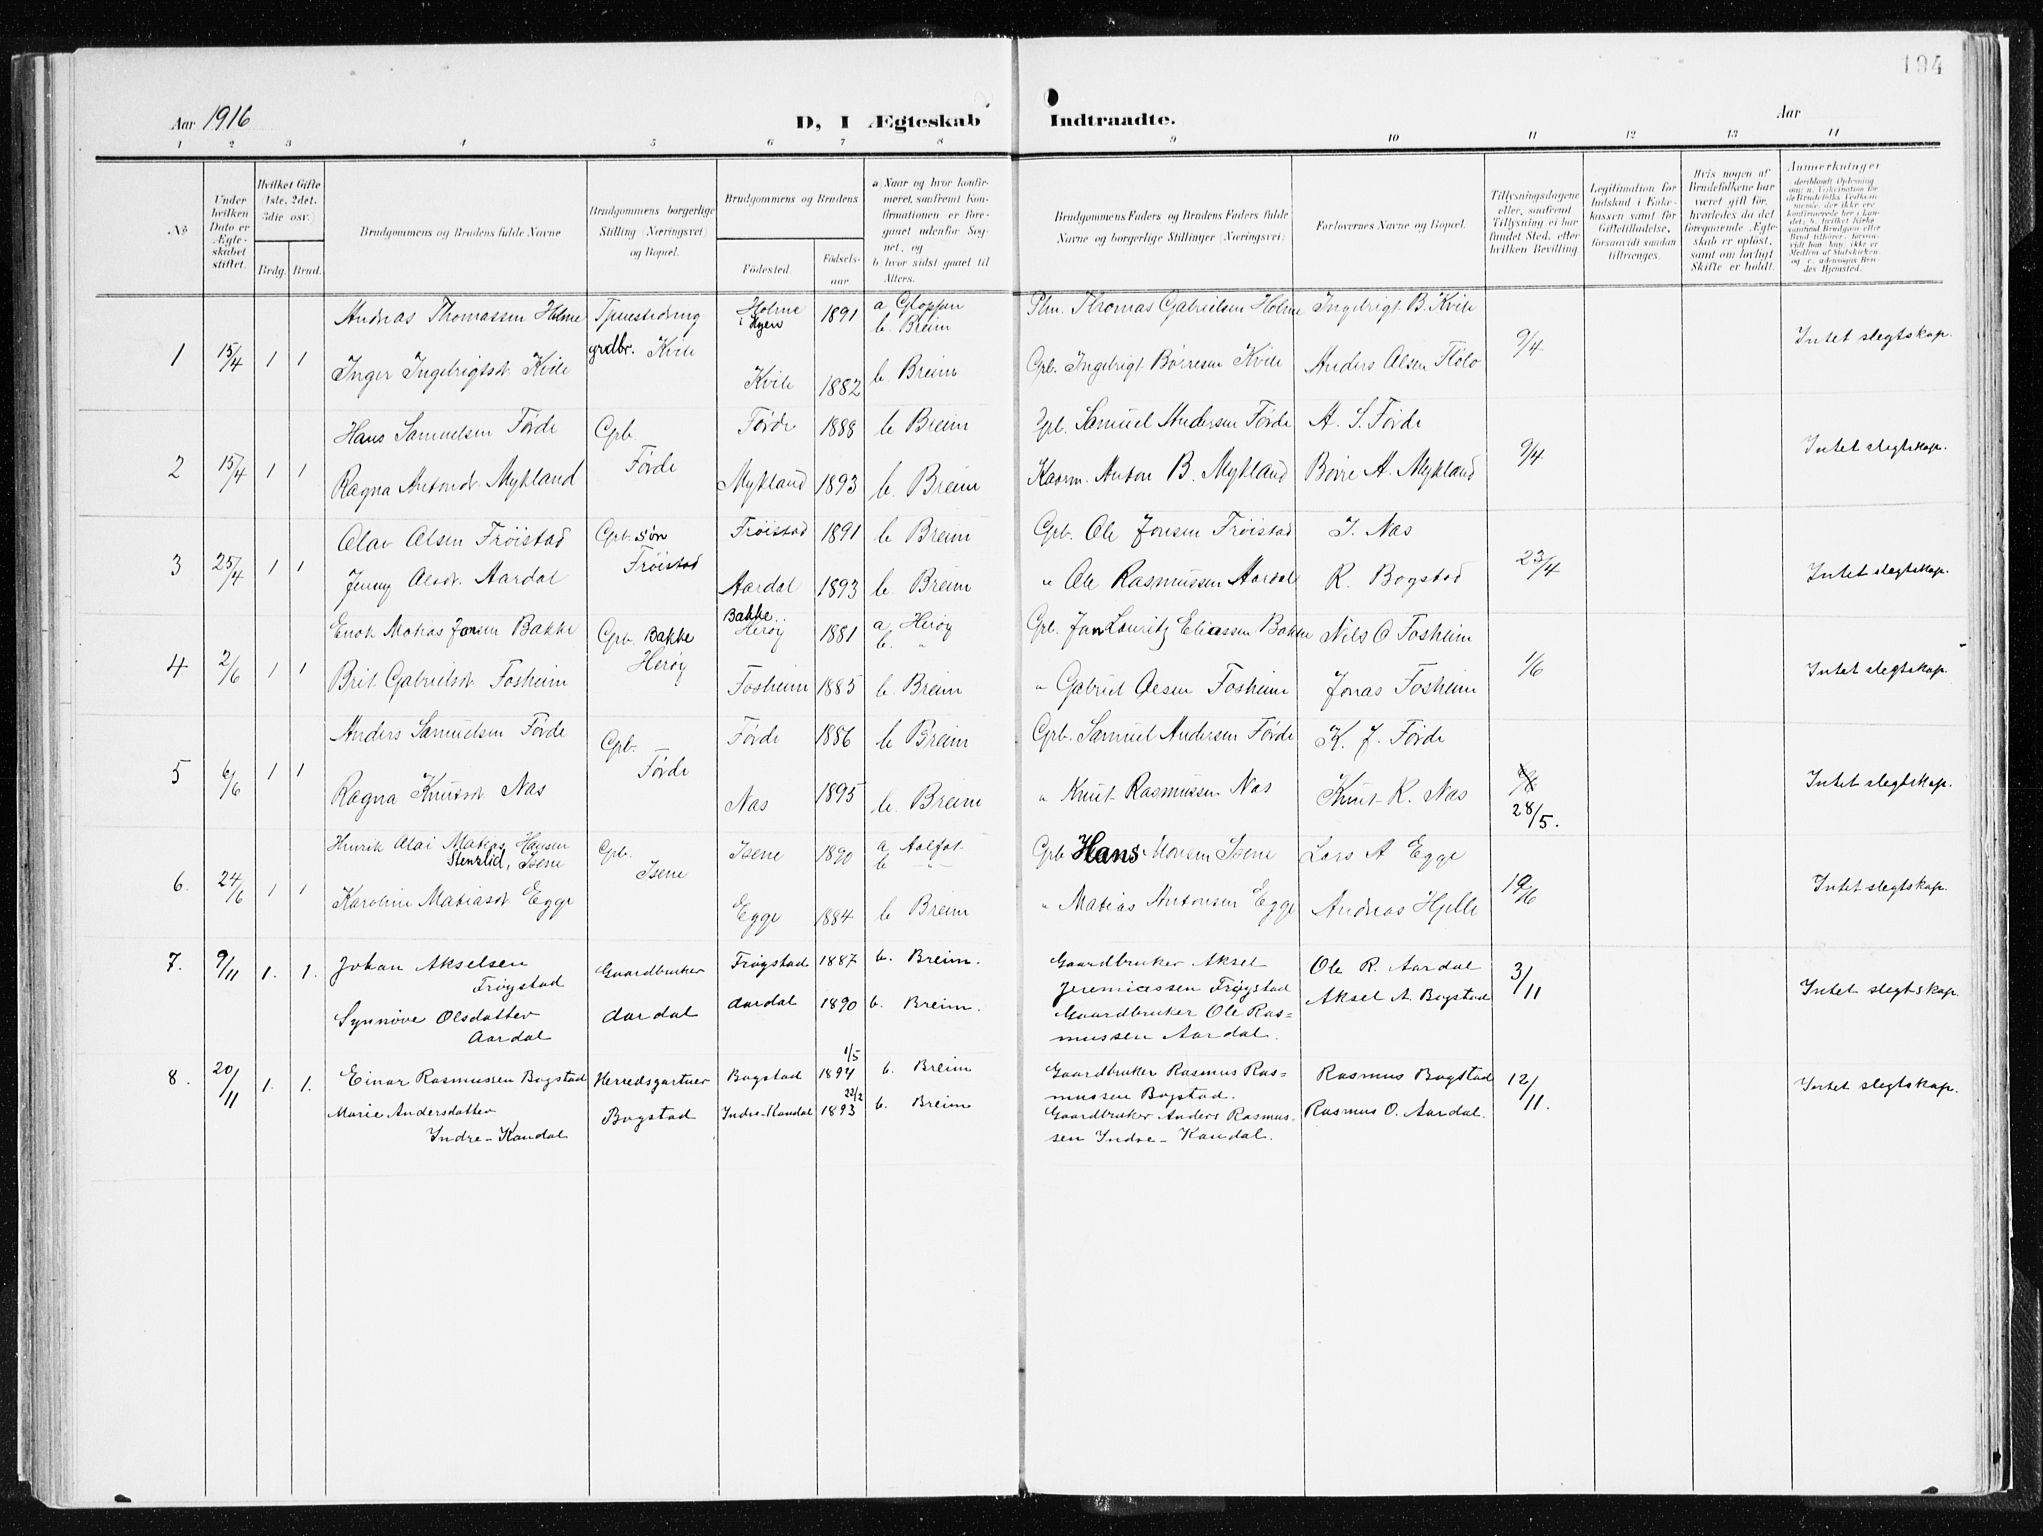 194
Aar 1916
D, I Ægteskab Indtraadte.
Aar
1 2 3 4 5 6 7 8 9 10 11 12 13 14
№
Under hvilken Dato er Ægteskabet stiftet.
Hvilket Gifte (1ste, 2det, 3die osv.)
Brdg. Brud.
Brudgommens og Brudens fulde Navne
Brudgommens borgerlige Stilling (Næringsvei) og Bopæl.
Brudgommens og Brudens
Fødested. Fødsels-aar
a) Naar og hvor konfirmeret, samfremt Konfirmationen er foregaaet udenfor Sognet, og
b hvor sidst gaaet til Alters.
Brudgommens Faders og Brudens Faders fulde Navne og borgerlige Stillinger (Næringsvei)
Forlovernes Navne og Bopæl.
Tillysningsdagene eller, samfremt Tillysning ei har fundet Sted, efter hvilken Bevilling
Legitimation for Indskud i Enkekassen samt for Giftetilladelse, forsaavidt saadan tiltrænges.
Hvis nogen af Brudefolkene har været gift før, hvorledes da det foregaaende Ægteskab er opløst, samt om lovligt Skifte er holdt.
Anmerkninger
1 15/4 1 1 Andreas Thomassen Holme Tjenestedreng Holme i Hyen 1891 a Gloppen b. Breim Plm. Thomas Gabrielsen Holme Ingebrigt B. Kvile 9/4 Intet slegtskap.
Inger Ingebrigtsdt. Kvile grdbr. Kvile Kvile 1882 b Breim Gpb. Ingebrigt Børresen Kvile Anders Olsen Flølo
2 15/4 1 1 Hans Samuelsen Førde Gpb. Førde Førde 1888 b Breim Gpb. Samuel Andersen Førde A. S. Førde 9/4 Intet slegtskap.
Ragna Antonsdt. Mykland Mykland 1893 b. Breim Kaarm. Anton B. Mykland Børre A. Mykland
3 25/4 1 1 Olav Olsen Frøistad Gpb. søn Frøistad Frøistad 1891 b Breim Gpb. Ole Jonsen Frøistad J. Nas 23/4 Intet slegtskap.
Jenny Olsdt. Aardal Aardal 1893 b. Breim " Ole Rasmussen Aardal R. Bogstad
4 2/6 1 1 Enok Matias Jonsen Bakke Gpb. Bakke Herøy Bakke Herøy 1881 a Herøy b. " Gpb. Jan Lauritz Eliassen Bakke Nils O Fosheim 1/6 Intet slegtskap.
Brit Gabrielsdt Fosheim Fosheim 1885 b. Breim " Gabriel Olsen Fosheim Jonas Fosheim
5 6/6 1 1 Anders Samuelsen Førde Gpb. Førde Førde 1886 b Breim Gpb. Samuel Andersen Førde K. J. Førde 28/5. Intet slegtskap.
Ragna Knutsdt. Nas Nas 1895 b. Breim " Knut Rasmussen Nas Knut R. Nas
6. 24/6 1 1 Henrik Olai Matias Hansen Stenslid, Isene Gpb. Isene Isene 1890 a Aalfot b " Gpb Hans Monsen Isene Lars A Egge 19/6 Intet slegtskap.
Karoline Matiasdt Egge Egge 1884 b Breim " Matias Antonsen Egge Andreas Hjelle
7. 9/11 1. 1. Johan Akselsen Frøystad Gaardbruker Aardal Frøystad 1887 b. Breim. Gaardbruker Aksel Jeremiassen Frøystad Ole R. Aardal 3/11 Intet slegtskap.
Synnøve Olsdatter Aardal Aardal 1890 b. Breim. Gaardbruker Ole Rasmussen Aardal. Aksel A. Bogstad
8. 20/11 1. 1. Einar Rasmussen Bogstad Herredsgartner Bogstad Bogstad 1/5 1894 b. Breim Gaardbruker Rasmus Rasmussen Bogstad. Rasmus Bogstad 12/11. Intet slegtskap.
Marie Andersdatter Indre-Kandal Indre-Kandal 22/2 1893 b. Breim Gaardbruker Anders Rasmussen Indre-Kandal. Rasmus O. Aardal.